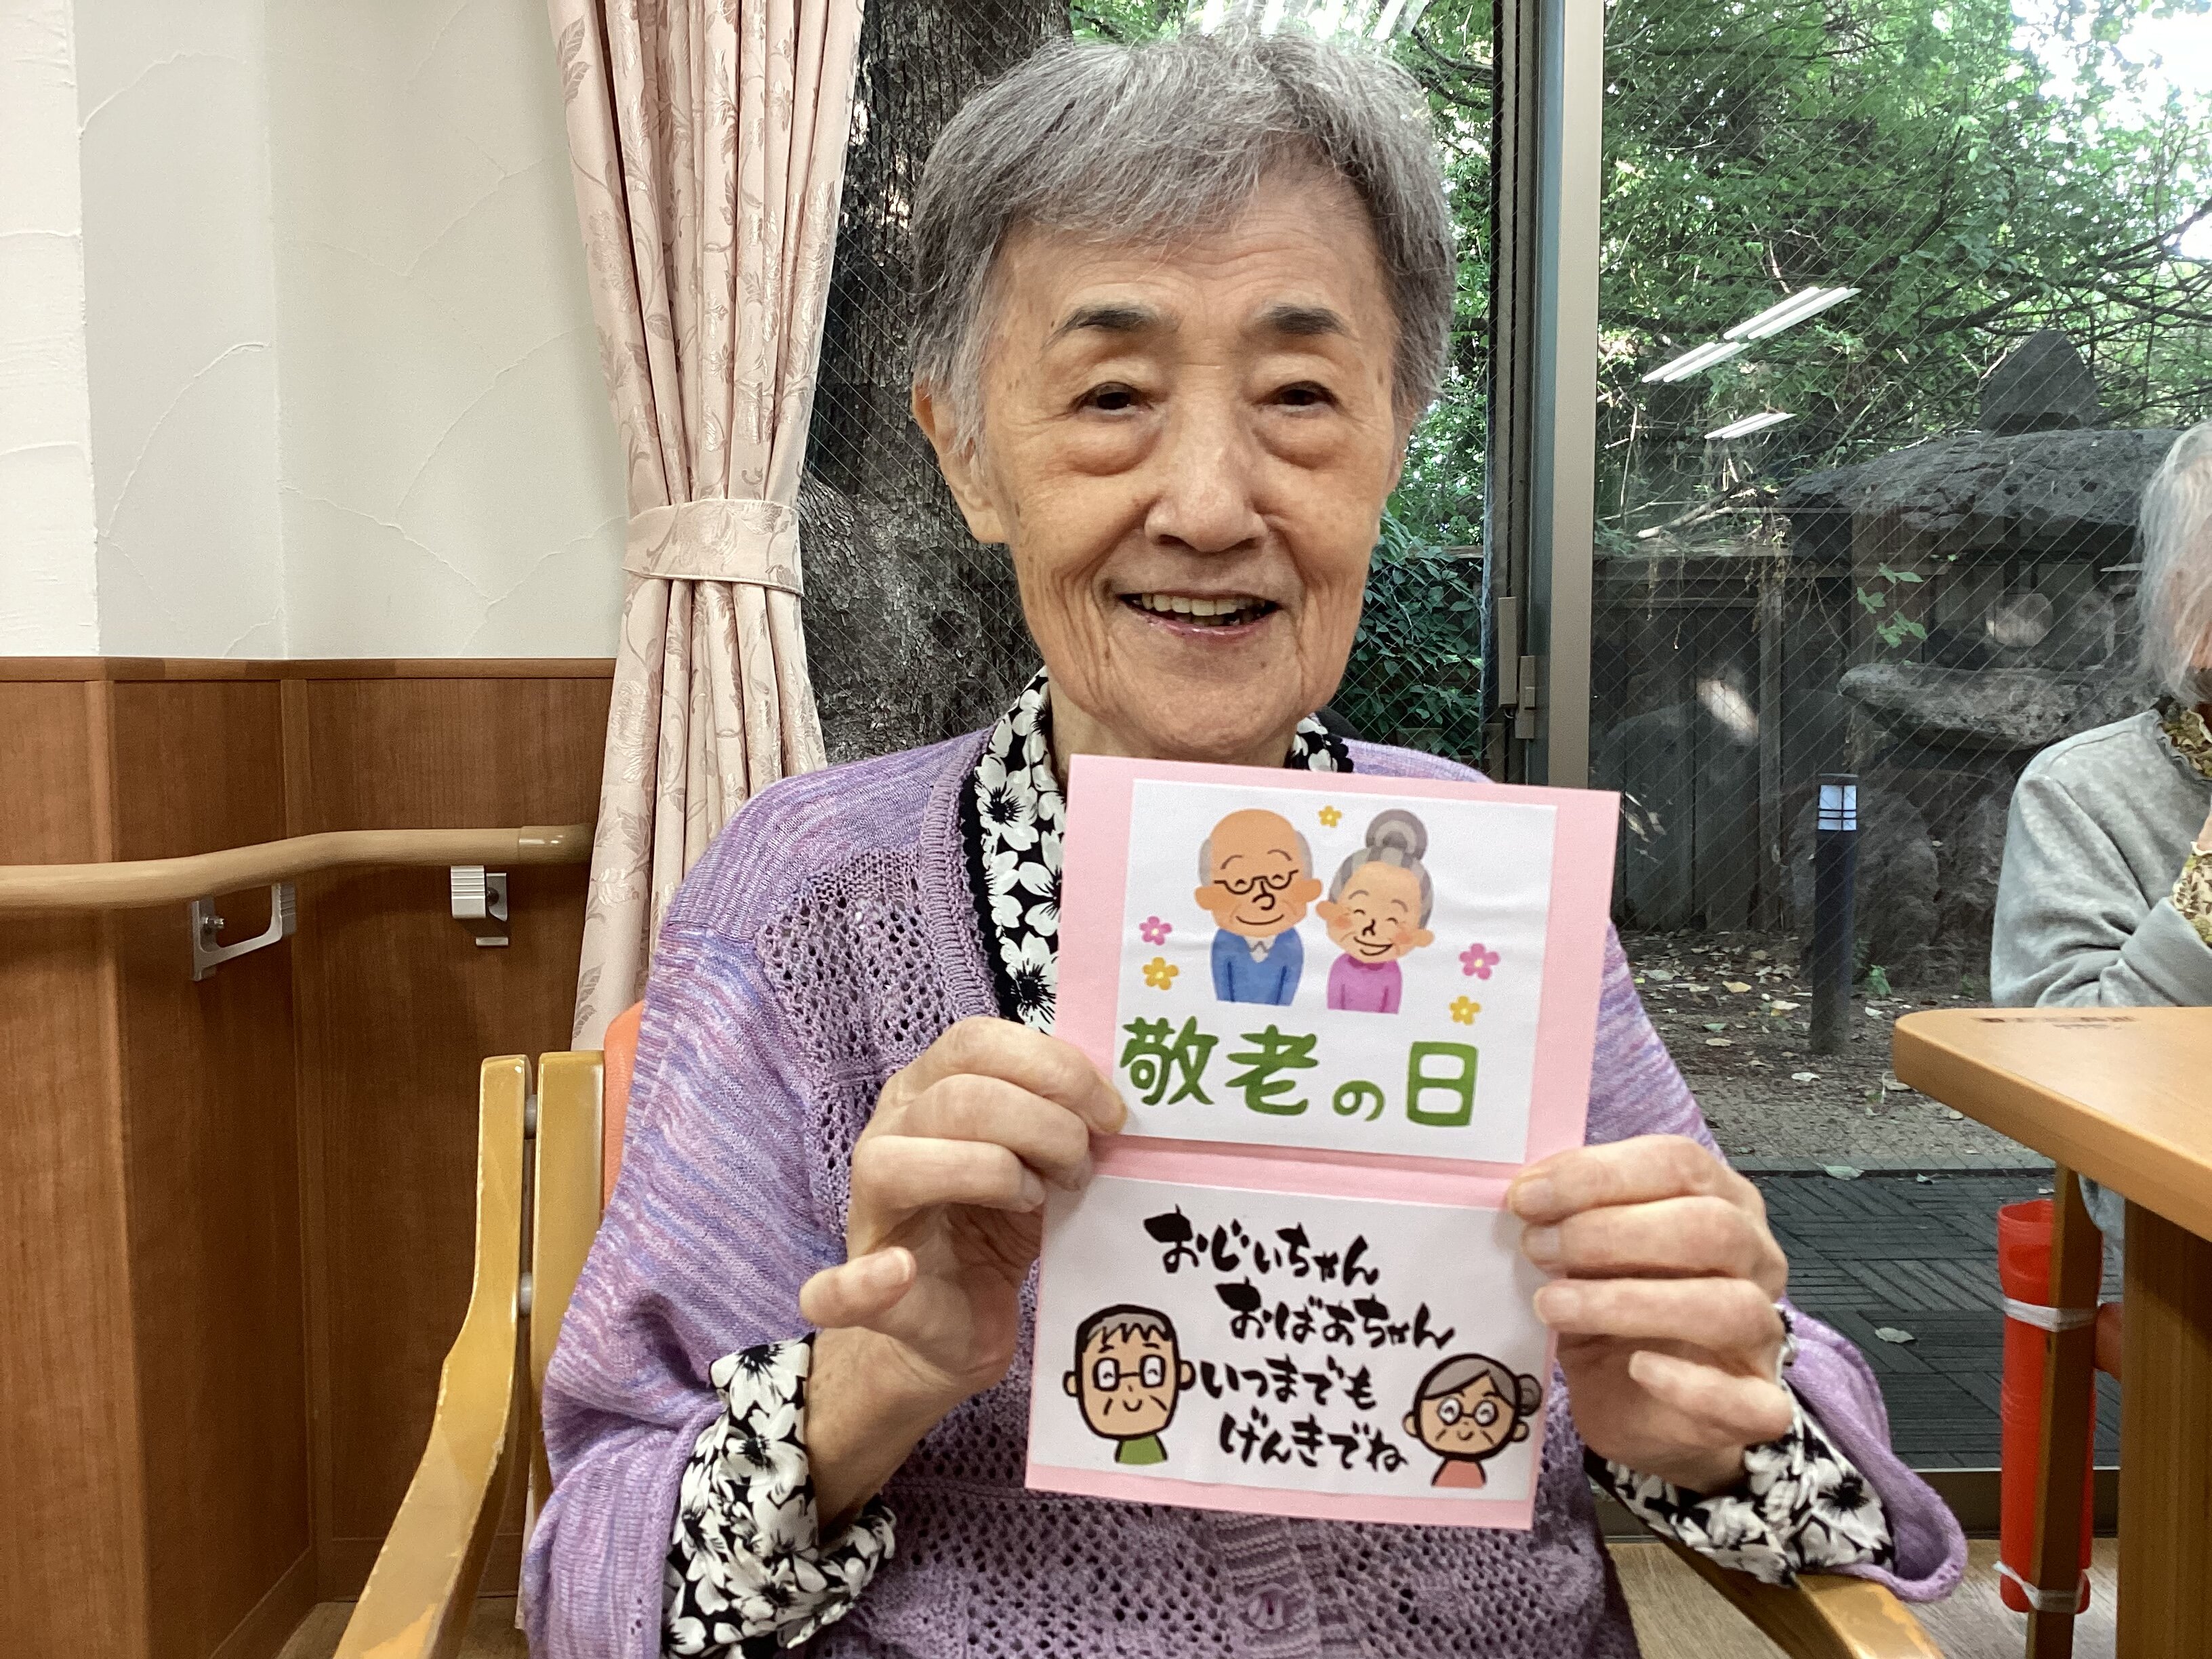 敬老の日
おじいちゃん
おばあちゃん
いつまでも
げんきでね